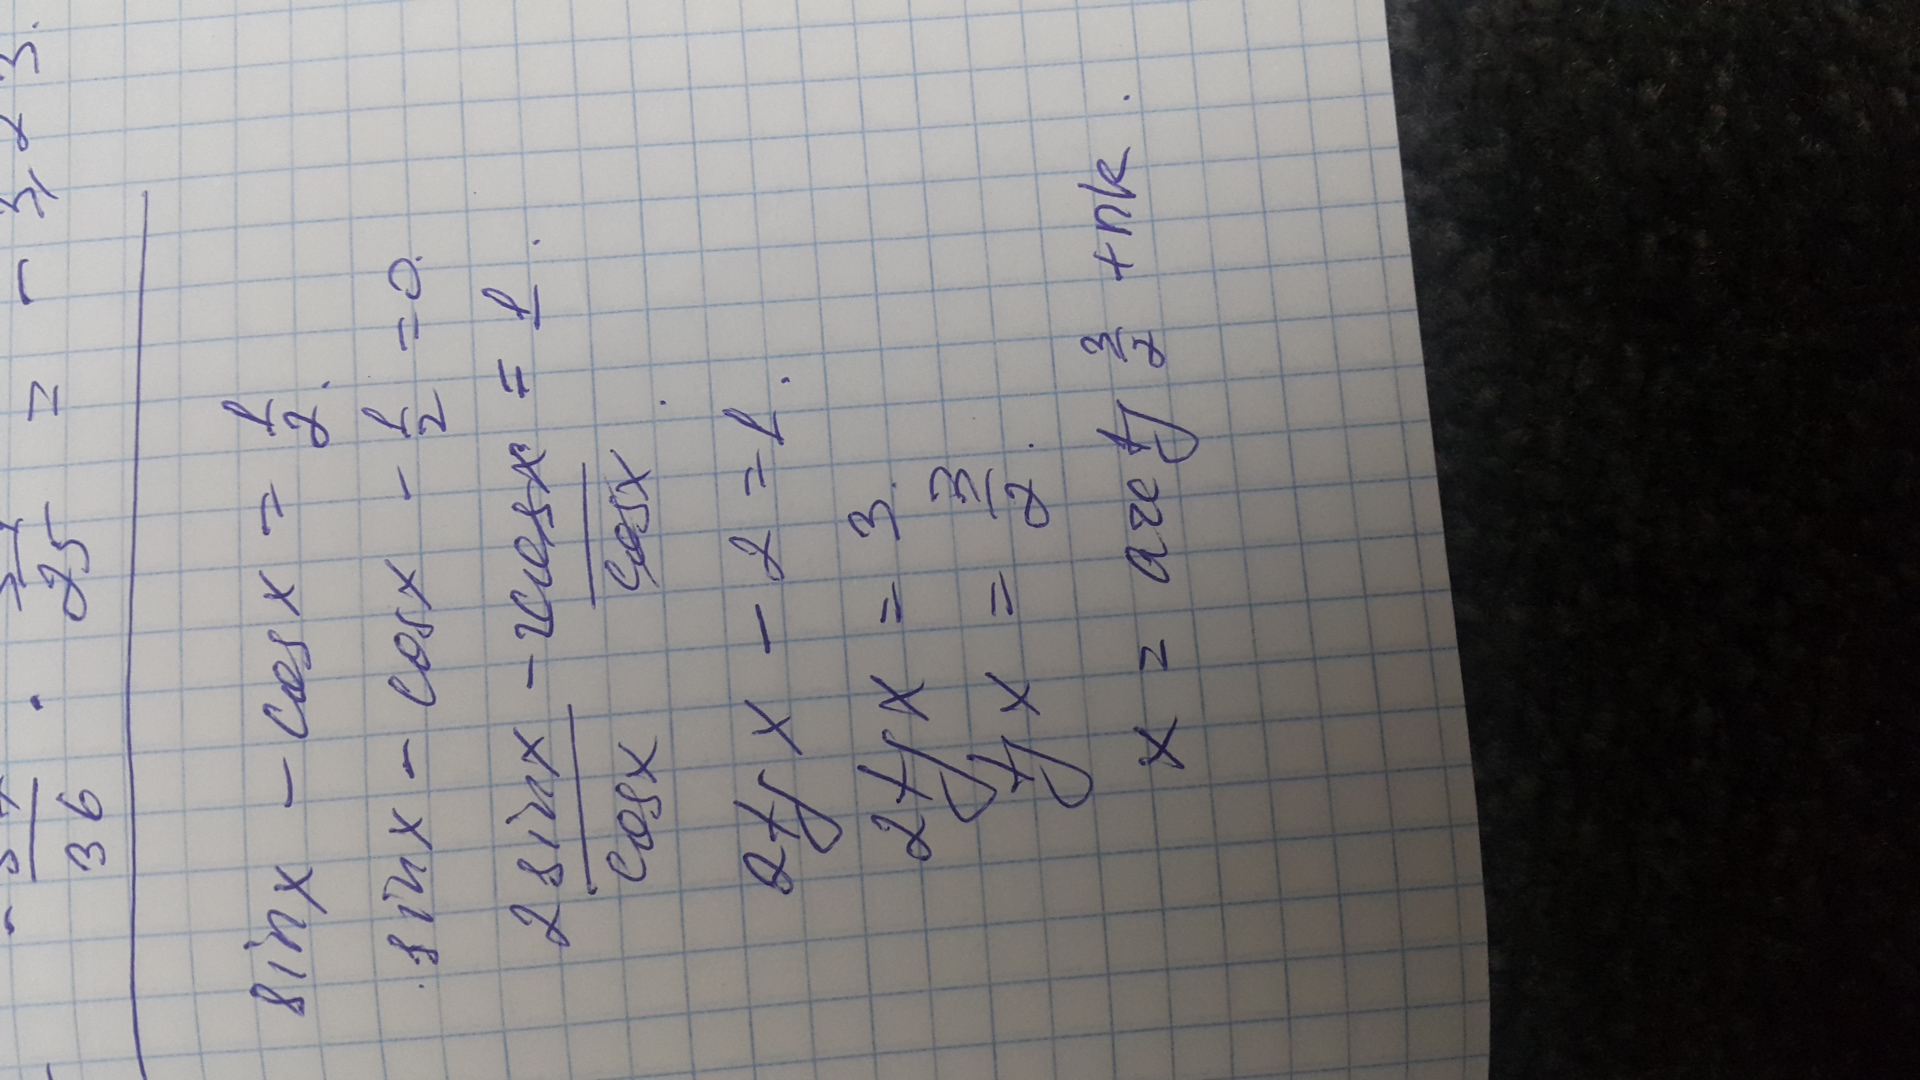 36 · 25 = - 3, 23.
sinx - cosx = 1/2.
sinx - cosx - 1/2 = 0.
2 sinx/cosx - 2cosx/cosx = 1.
2tgx - 2 = 1.
2tgx = 3.
tgx = 3/2.
x = arctg 3/2 + πk.